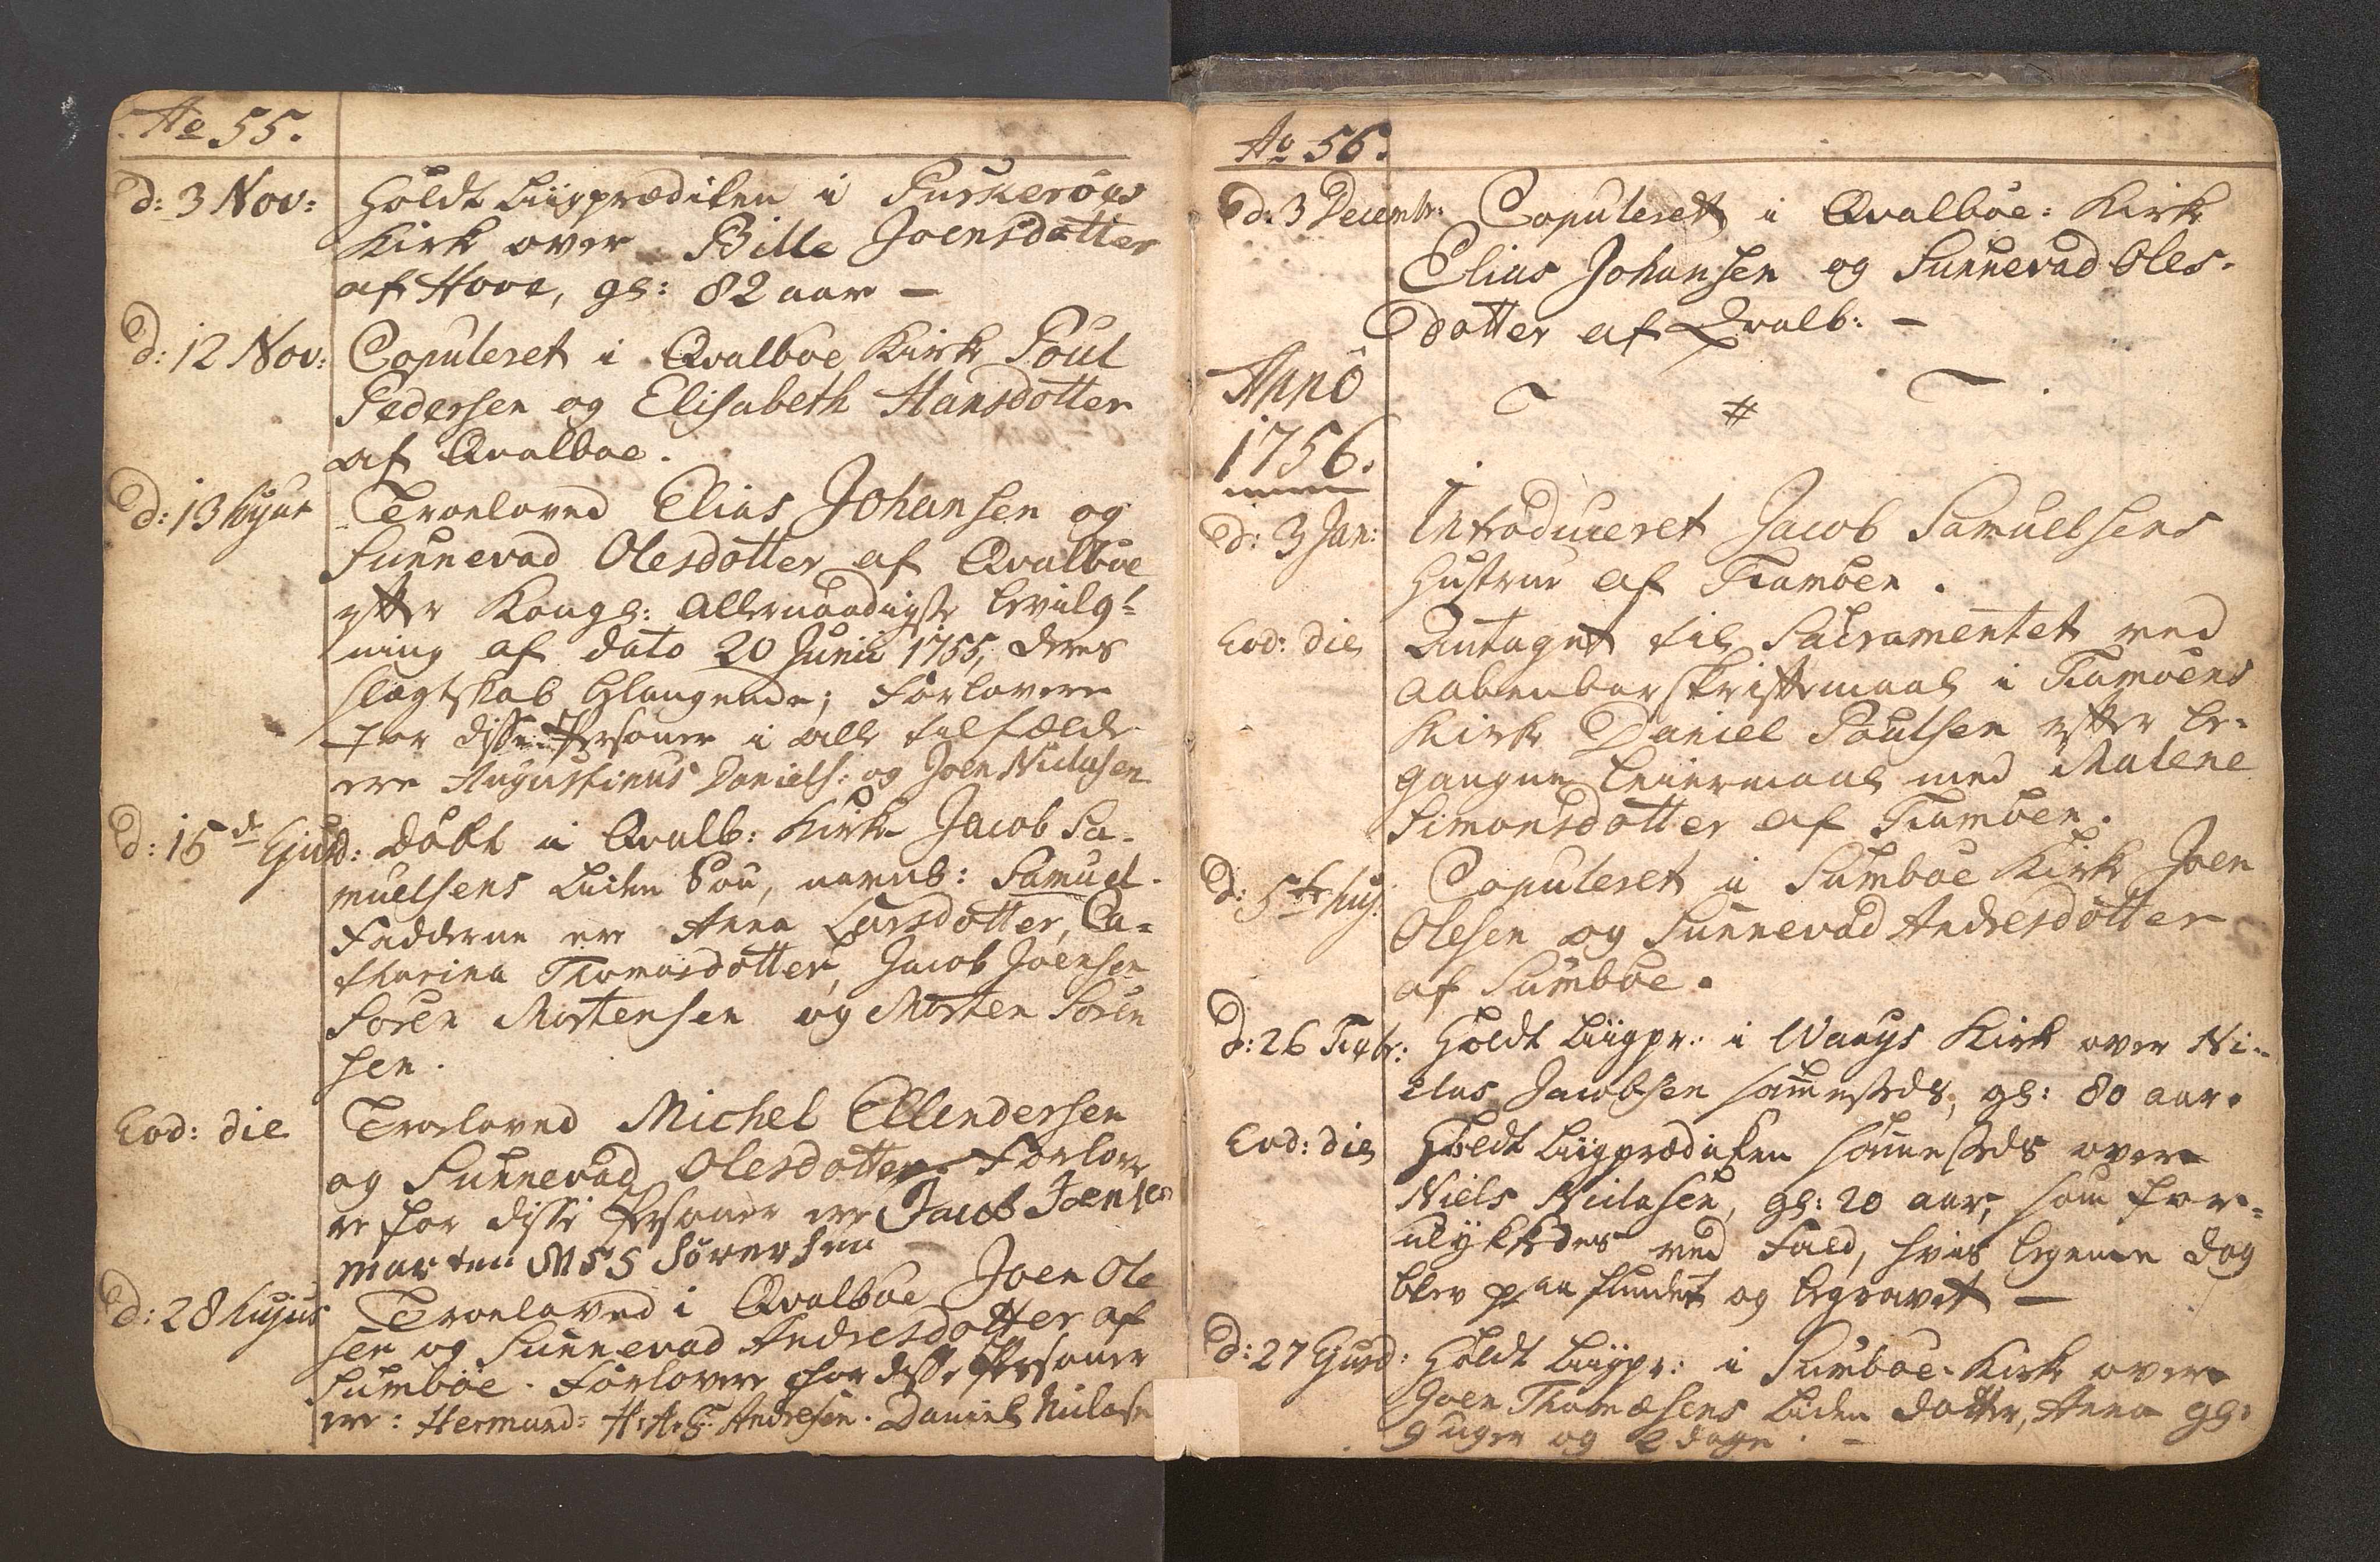 Ao 55.
d: 3 Nov: Holdt Liigprædiken i Purkerøes
Kirke over Bille Joensdotter
af Hove, gl: 82 aar —
d: 12 Nov: Copuleret i Qvalbøe Kirke Poul
Pedersen og Elisabeth Hansdotter
af Qvalboe.
d: 13 hujus Troeloved Elias Johansen og
Sunnevad Olesdotter af Qvalboe
efter Kongl: allernaadigste bevilg-
ning af dato 20 Junii 1755, deres
slægtskab belangende; Forlovere
for disse Personer i alle tilfælde
ere Augustinus Daniels: og Joen Niclasen
d: 15de Ejusd: døbt i Qvalb: Kirke Jacob Sa-
muelsens liden Søn, navnl: Samuel.
Fadderne er Anna Larsdotter, Ca-
tharina Thomasdotter, Jacob Joensen
Søren Mortensen og Morten Søren
sen.
Eod: die Troeloved Michel Ellendersen
og Sunnevad Olesdotter. Forlove
re for disse Personer ere Jacob Joensen
marten MSS Sørensen
d: 28 hujus Troeloved i Qvalboe Joen Ole
sen og Sunnevad Andresdotter af
Sumbøe. Forlovere for disse Personer
ere: Hermand: H.A.S. Andresen. Daniel Niclase
Ao 56.
d: 3 Decembr: Copuleret i Qvalbøe: Kirke
Elias Johansen og Sunnevad Oles-
dotter af Qvalb: —
Anno
1756.
d: 3 Jan: Introduceret Jacob Samuelsens
Hustrue af Famøen.
Eod: die Antaget til Sacramentet ved
aabenbar skriftemaal i Famøens
Kirke Daniel Poulsen efter be-
gangne leiermaal med Malene
Simonsdotter af Famøen.
d: 5te huj: Copuleret i Sumboe Kirke Joen
Olesen og Sunnevad Andresdotter
af Sumboe.
d: 26 Holdt Liigpr: i Waags Kirke over Ni-
clas Jacobsen sammesteds, gl: 80 aar.
Eod: die Holdt Liigprædiken sammesteds over
Niels Niclasen, gl: 20 aar, som for-
ulykkedes ved Fald, hvis legeme dog
blev paa fundet og begravet —
d: 27 Ejusd: Holdt Liigpr: i Sumboe Kirke over
Joen Thomæsens liden datter, Anna gl:
9 uger og 2 dage. —